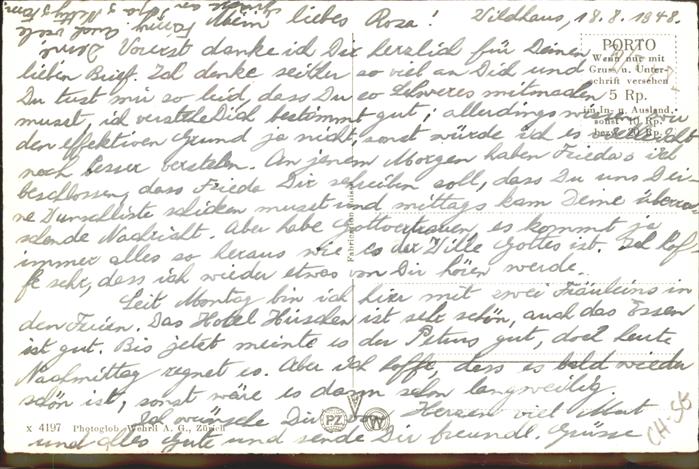 Mein liebes Rosa! Wildhaus, 18.8.1948.
Vorerst danke ich Dir herzlich für Deinen
lieben Brief. Ich denke seither so viel an Dich und
Du tust mir so leid, dass Du so Schweres mitmachen
musst, ich verstehe Dich bestimmt gut; allerdings
den effektiven Grund ja nicht, sonst würde ich es vielleicht
noch besser verstehen. An jenem Morgen haben Frieda & ich
beschlossen, dass Frieda Dir schreiben soll, dass Du uns Dei-
ne Wunschliste schicken musst und mittags kam Deine überra-
schende Nachricht. Aber habe Gottvertrauen, es kommt ja
immer alles so heraus wie es der Wille Gottes ist. Ich hof-
fe sehr, dass ich wieder etwas von Dir hören werde.
Seit Montag bin ich hier mit zwei Fräuleins in
den Ferien. Das Hotel Hirschen ist sehr schön, auch das Essen
ist gut. Bis jetzt meinte es der Petrus gut, doch heute
Nachmittag regnet es. Aber ich hoffe, dass es bald wieder
schön ist, sonst wäre es dann schon langweilig.
Ich wünsche Dir von Herzen viel Mut
und alles Gute und sende Dir freundl. Grüsse
PORTO
Wenn nur mit
Gruss u. Unter-
schrift versehen
5 Rp.
im In- u. Ausland,
sonst 10 Rp.
bezw. 20 Rp.
X 4197 Photoglob-Wehrli A. G., Zürich
PZ W
CH-SG